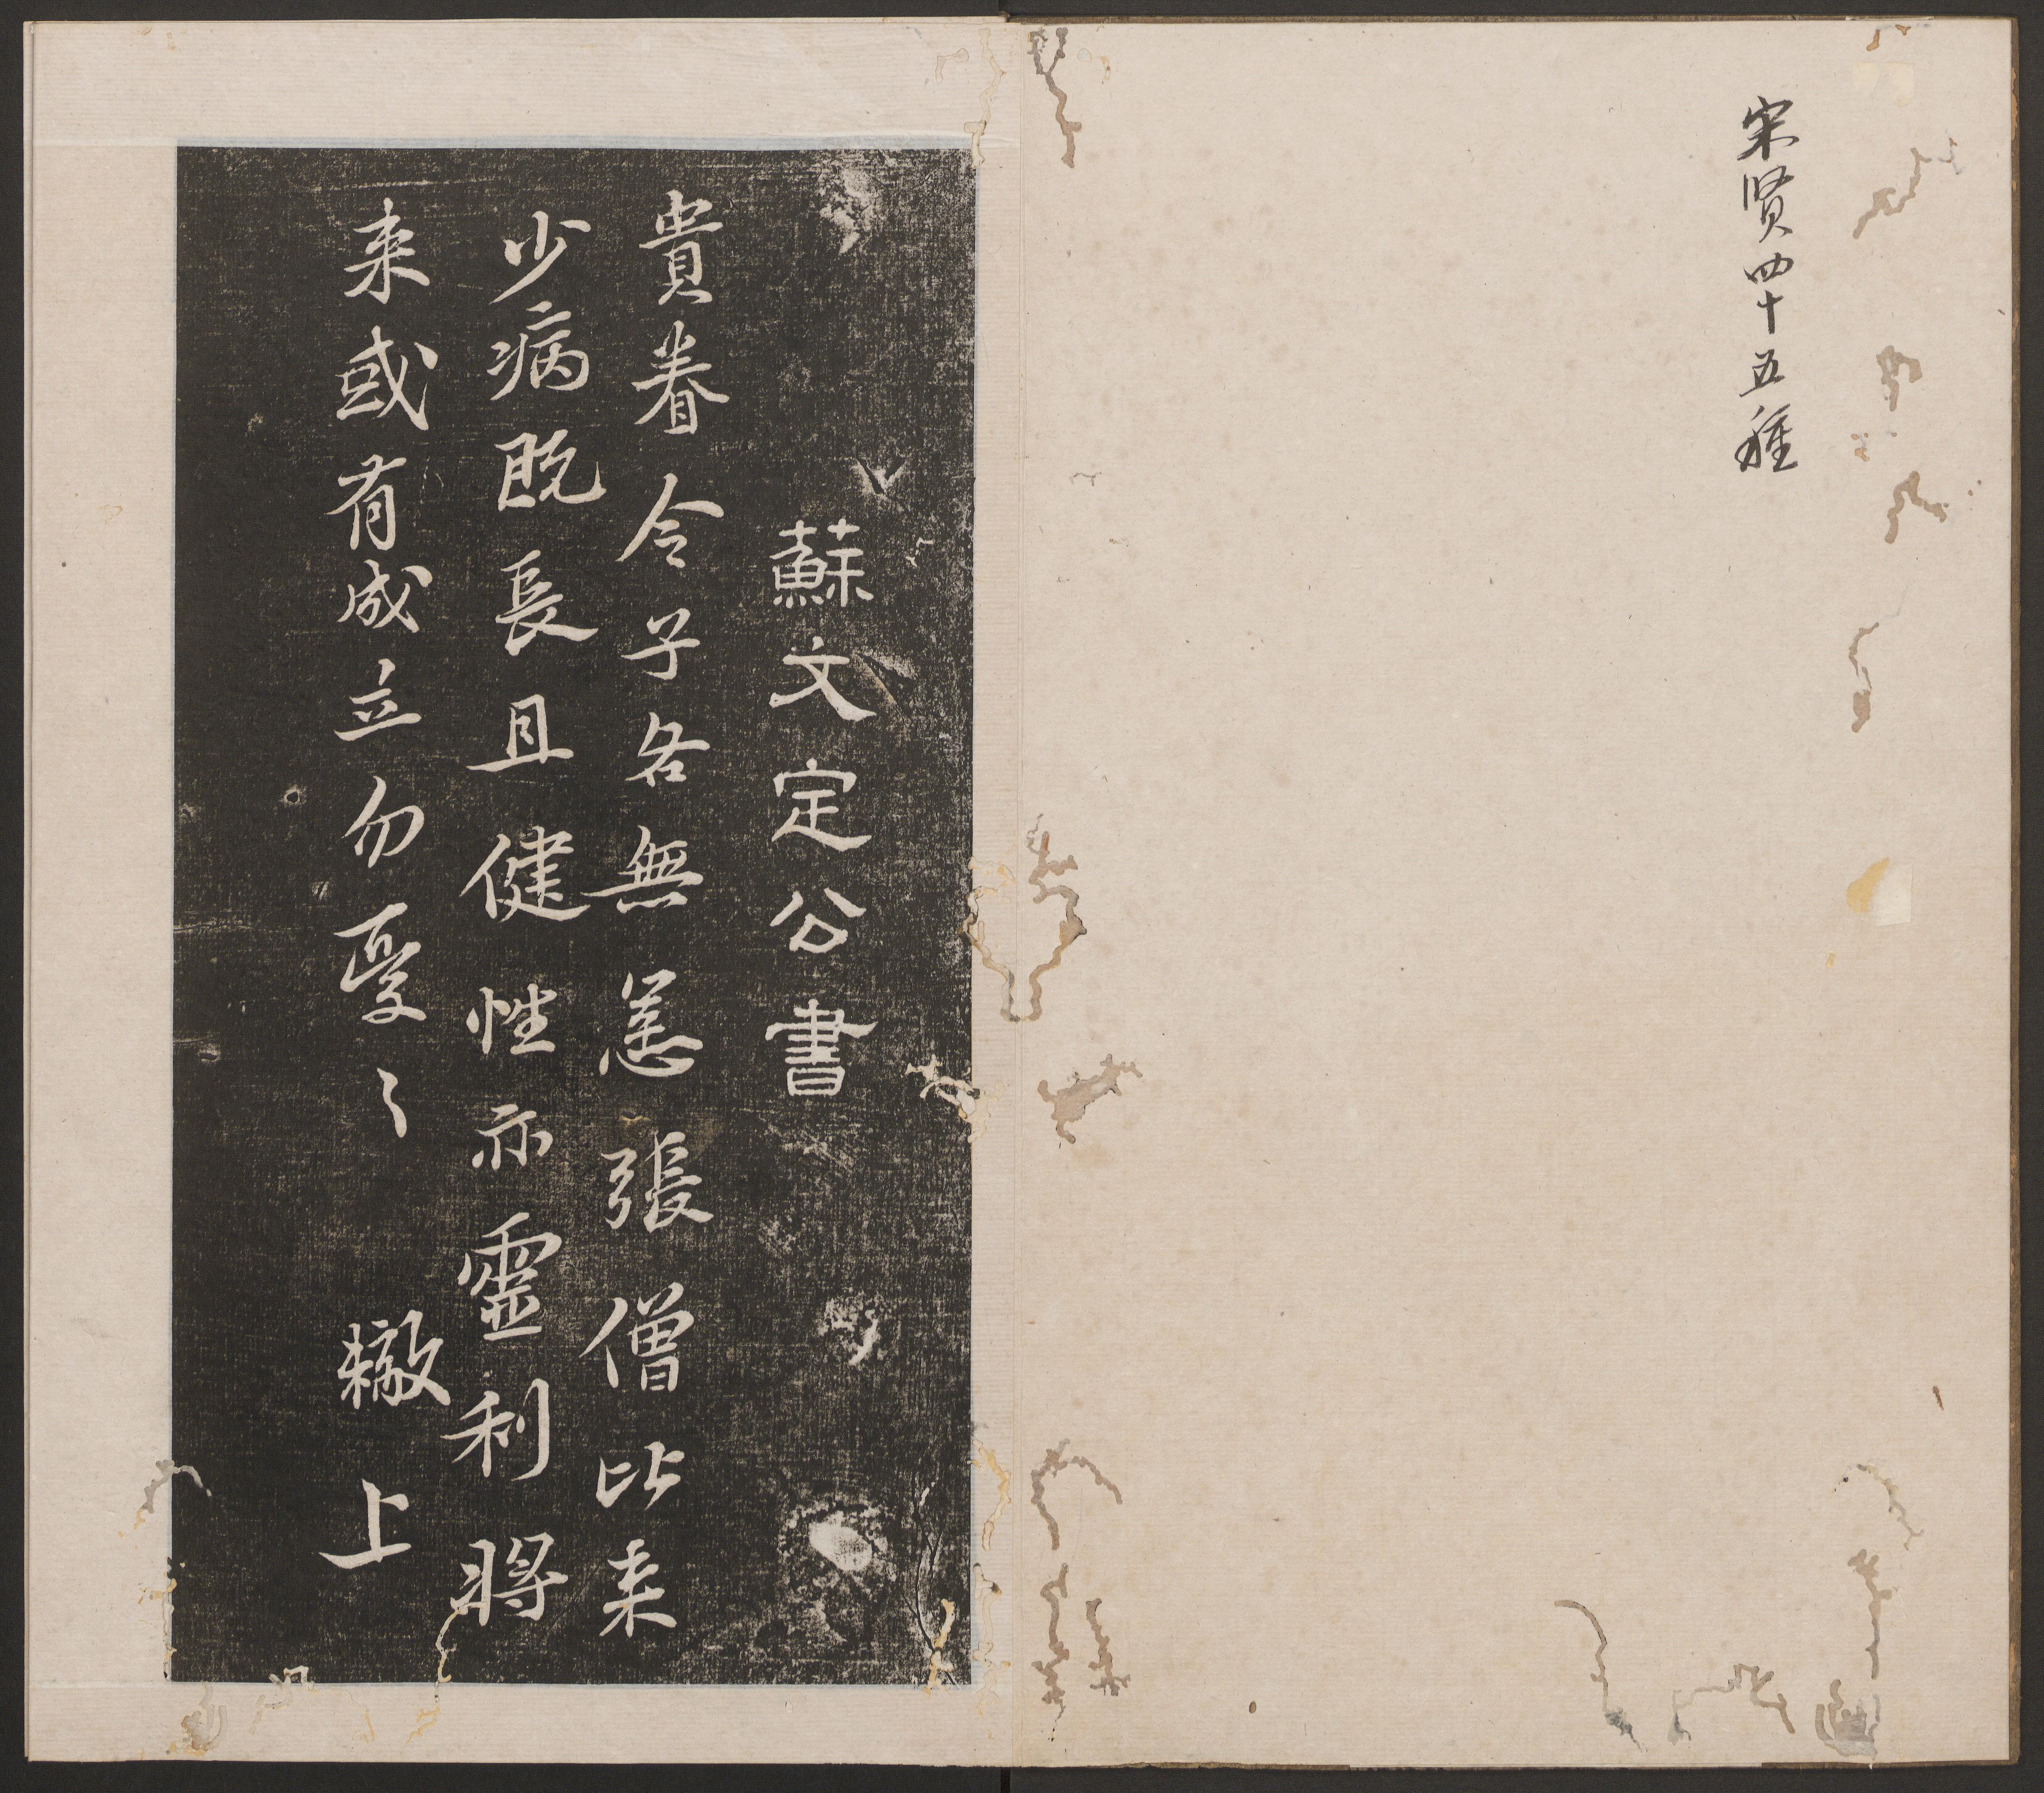 宋贤四十五種
蘇文定公書
貴眷令子各無恙張僧比来
少病既長且健性亦靈利將
来或有成立勿憂〻 轍上